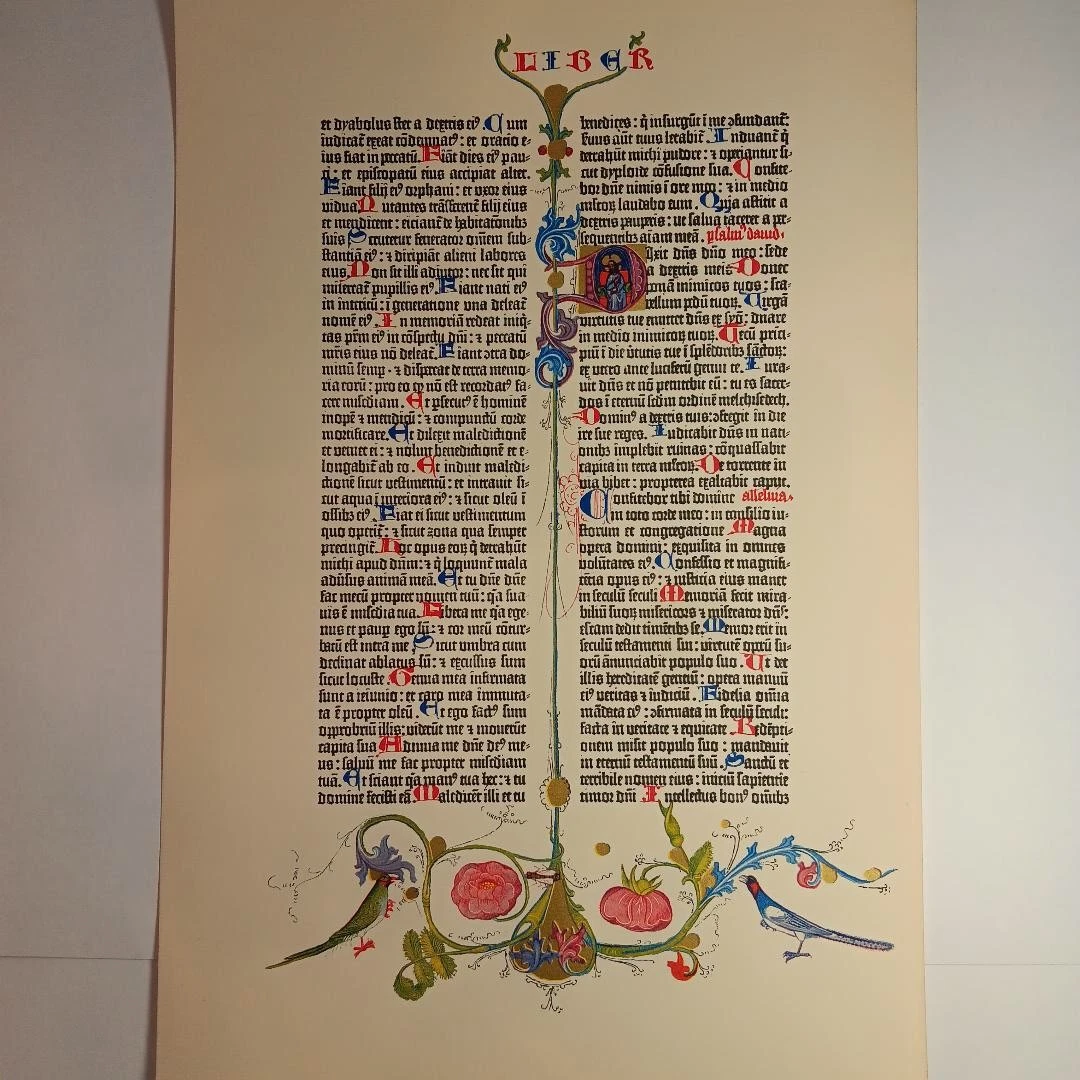 LIBER
et dyabolus stet a dextris ei⁹. Cum
iudicat̄ exeat cōdempnat⁹: et oratio e-
ius fiat in peccatū. Fiāt dies ei⁹ pau-
ci: et episcopatū eius accipiat alter.
Fiant filij ei⁹ orphani: et uxor eius
vidua. Nutantes trāsferent̄ filij eius
et mendicent: eiciant̄ de habitacōnibꝫ
suis. Scrutetur fenerator omnem sub-
stantiā ei⁹: ⁊ diripiāt alieni labores
eius. Non sit illi adiutor: nec sit qui
misereat̄ pupillis ei⁹. Fiant nati ei⁹
in interitū: ī generatione vna deleat̄
nomē ei⁹. In memoriā redeat iniq̄-
tas pr̄m ei⁹ in cōspectu dn̄i: ⁊ peccatū
mr̄is eius nō deleat̄. Fiant ɔtra do-
minū semp. ⁊ dispereat de terra memo-
ria eorū: pro eo qꝫ nō est recordat⁹ fa-
cere misc̄diam. Et psecut⁹ ē hominē
inopē ⁊ mendicū: ⁊ compunctū corde
mortificare. Et dilexit maledictionē
et veniet ei: ⁊ noluit benedictionē et e-
longabit̄ ab eo. Et induit maledi-
ctionē sicut vestimentū: et intrauit si-
cut aqua ī interiora ei⁹: ⁊ sicut oleū ī
ossibꝫ ei⁹. Fiat ei sicut vestimentum
quo operit̄: ⁊ sicut zona qua semper
precingit̄. Hoc opus eoꝝ q̄ detrahūt
michi apud dn̄m: ⁊ q̄ loquunt̄ mala
aduſus animā meā. Et tu dn̄e dn̄e
fac mecū propter nomen tuū: q̄a sua-
uis ē misc̄dia tua. Libera me q̄a ege-
nus et paup ego sū: ⁊ cor meū cōtur-
batū est intra me. Sicut umbra cum
declinat ablatus sū: ⁊ excussus sum
sicut locuste. Genua mea infirmata
sunt a ieiunio: et caro mea īmmuta-
ta ē propter oleū. Et ego fact⁹ sum
opprobriū illis: viderūt me ⁊ mouerūt
capita sua. Adiuua me dn̄e de⁹ me-
us: saluū me fac propter misc̄diam
tuā. Et sciant q̄a man⁹ tua hec: ⁊ tu
domine fecisti eā. Maledicent illi et tu
benedices: q̄ insurgūt ī me ɔfundant̄:
seruus aūt tuus letabit̄. Induant̄ q̄
detrahūt michi pudore: ⁊ operiantur si-
cut dyploide cōfusione sua. Confite-
bor dn̄o nimis ī ore meo: ⁊ in medio
multoꝝ laudabo eum. Quia astitit a
dextris pauperis: ut saluā faceret a per-
sequentibꝫ aīam meā. psalm⁹ dauid.
Dixit dn̄s dn̄o meo: sede
a dextris meis. Donec
ponā inimicos tuos: sca-
bellum pedū tuoꝝ. Virgā
virtutis tue emittet dn̄s ex syō: dn̄are
in medio inimicoꝝ tuoꝝ. Tecū princi-
piū ī die v̄tutis tue ī splēdoribꝫ sāctoꝝ:
ex vtero ante luciferū genui te. Iura-
uit dn̄s et nō penitebit eū: tu es sacer-
dos ī eternū sc̄dm ordinē melchisedech.
Domin⁹ a dextris tuis: ɔfregit in die
ire sue reges. Iudicabit dn̄s in nati-
onibꝫ implebit ruinas: cōquassabit
capita in terra multoꝝ. De torrente in
via bibet: propterea exaltabit caput.
Confitebor tibi domine alleluia.
in toto corde meo: in consilio iu-
storum et congregatione. Magna
opera domini: exquisita in omnes
volūtates ei⁹. Confessio et magnifi-
cētia opus ei⁹: ⁊ iusticia eius manet
in seculū seculi. Memoriā fecit mira-
biliū suoꝝ misericors ⁊ miserator dn̄s:
escam dedit timētibꝫ se. Memor erit in
seculū testamenti sui: virtutē operū su-
orū ānunciabit populo suo. Ut det
illis hereditatē gentiū: opera manuū
ei⁹ veritas ⁊ iudiciū. Fidelia omīa
mādata ei⁹: ɔfirmata in seculū seculi:
facta in veritate ⁊ equitate. Redēpti-
onem misit populo suo: mandauit
in eternū testamentū suū. Sanctū et
terribile nomen eius: iniciū sapientie
timor dn̄i. Intellectus bon⁹ om̄ibꝫ